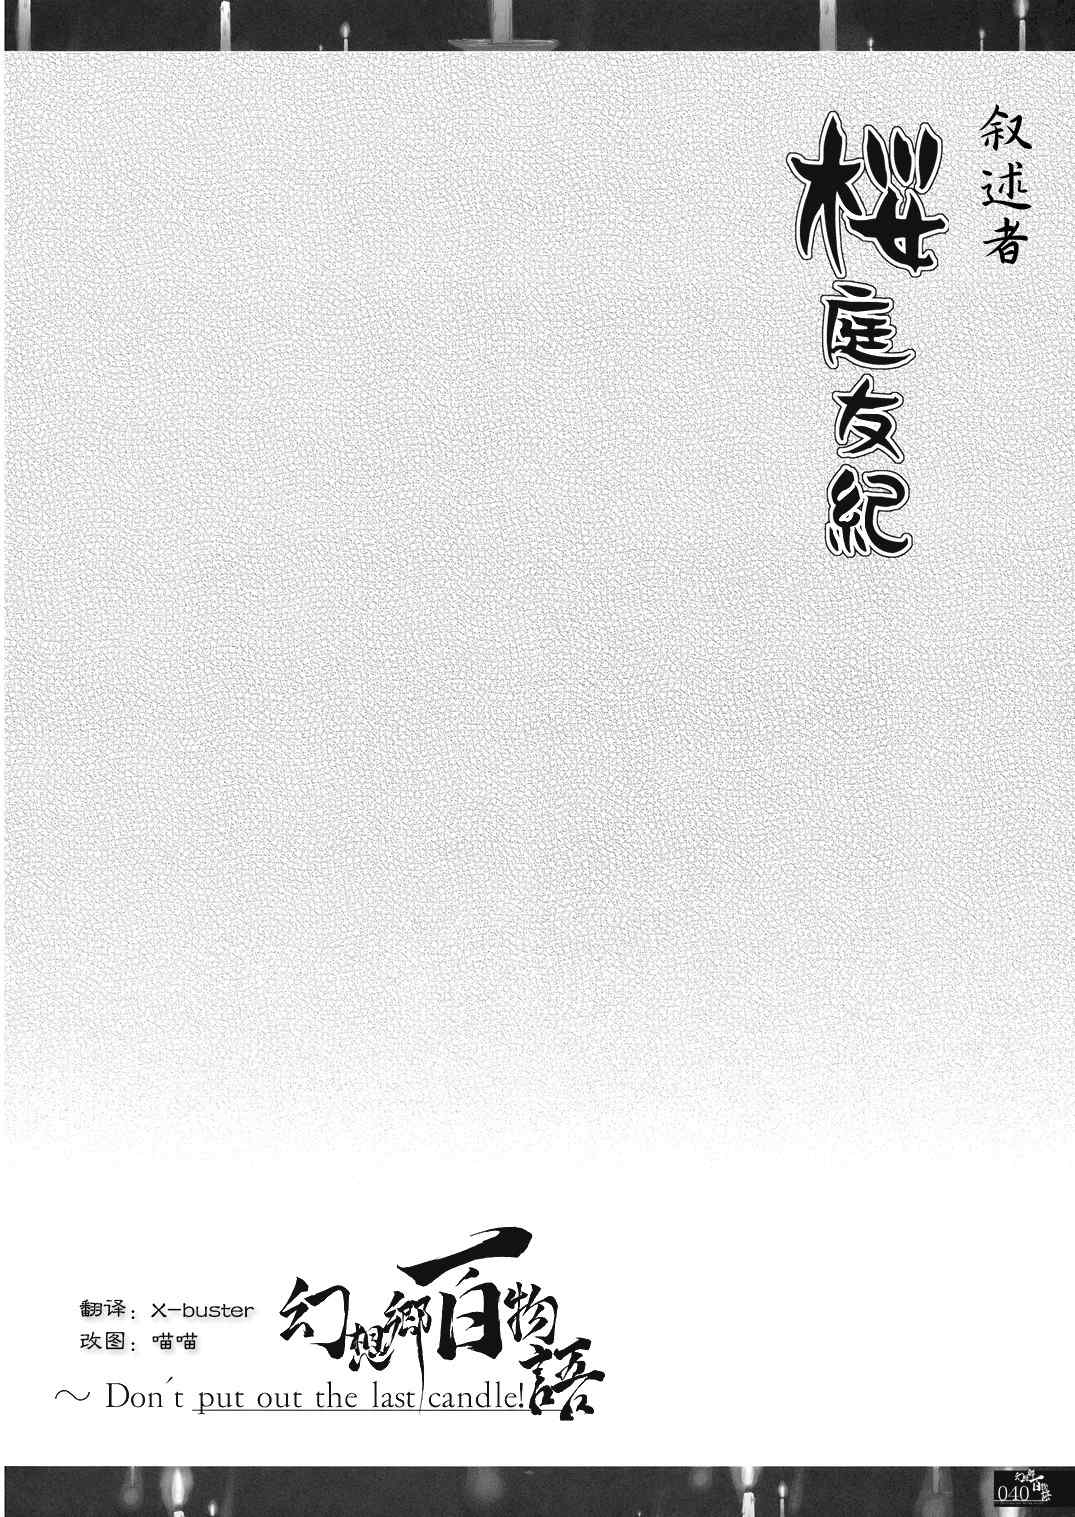 叙述者
桜庭友紀
翻译：X-buster
改图：喵喵
幻想郷百物語
～ Don´t put out the last candle!
040
幻想郷百物語